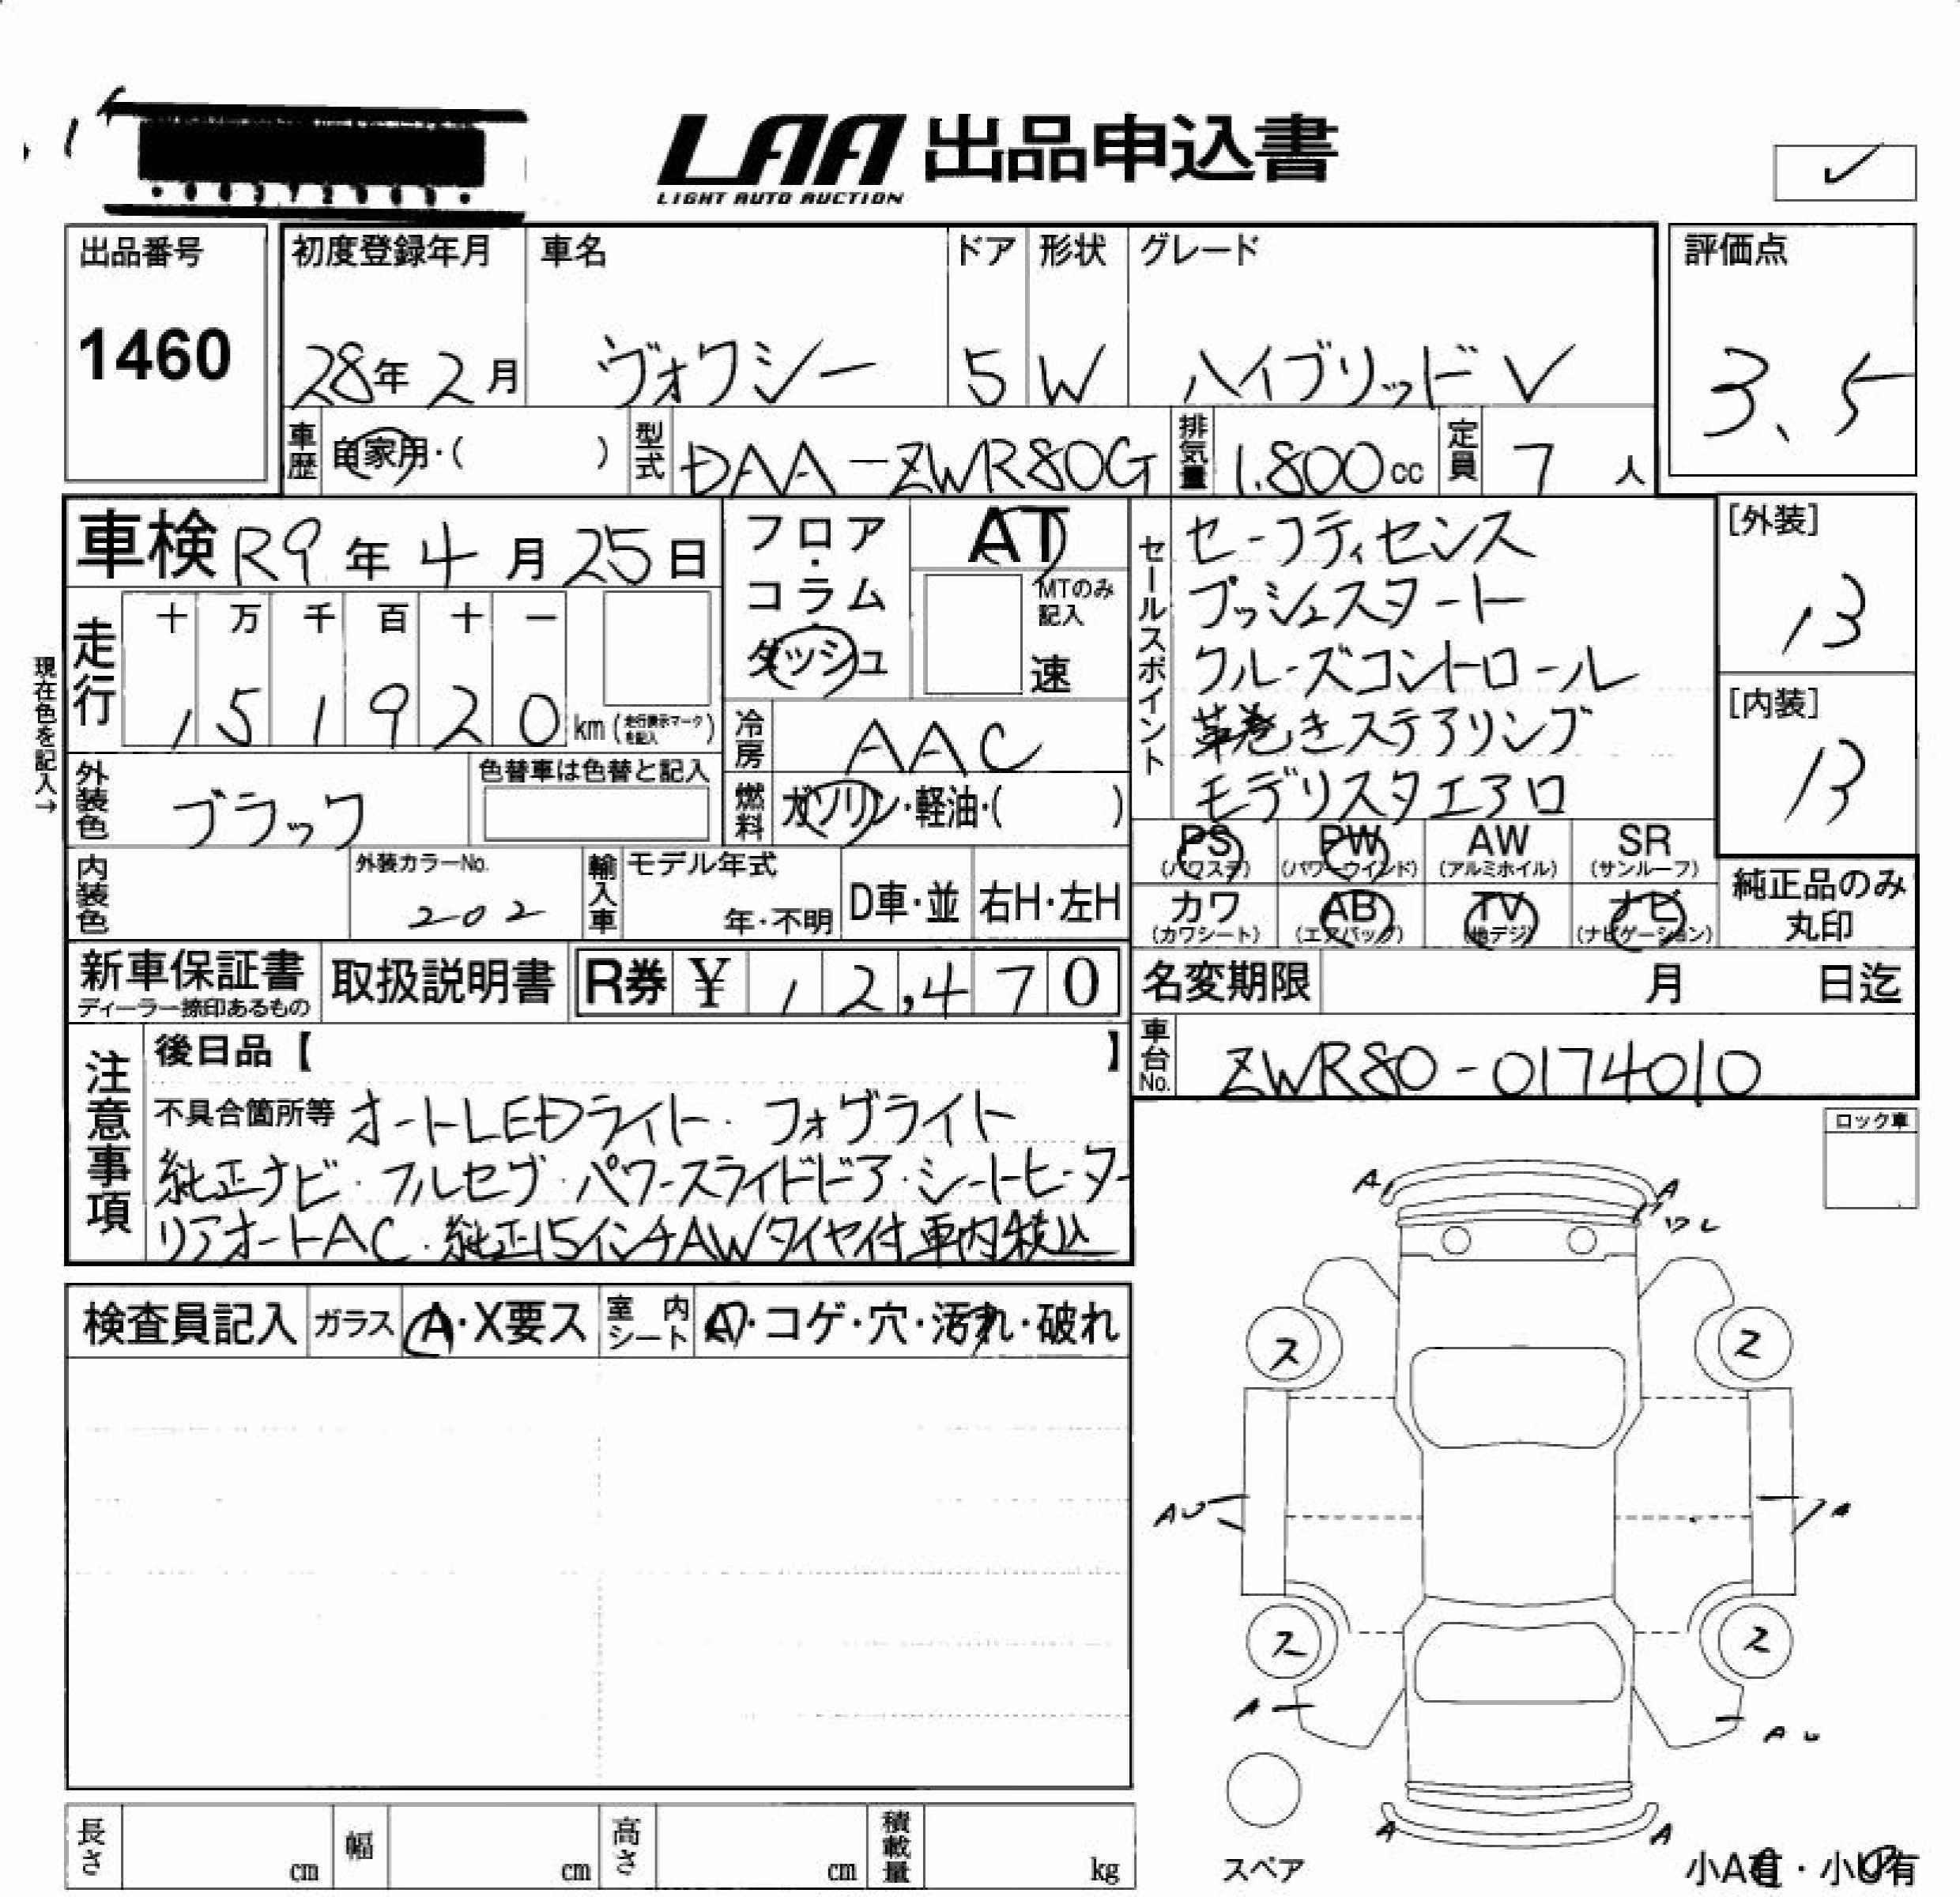 LAA 出品申込書
LIGHT AUTO AUCTION
出品番号
1460
初度登録年月
28年 2月
車名
ヴォクシー
ドア
5
形状
W
グレード
ハイブリッド V
評価点
3.5
車歴
自家用・( )
型式
DAA-ZWR80G
排気量
1.800cc
定員
7人
車検 R9年4月25日
フロア・コラム
ダッシュ
AT
MTのみ記入
速
走行
十 万 千 百 十 一
151920km(走行表示マークを記入)
現在色を記入→
外装色
ブラック
色替車は色替と記入
冷房
AAC
燃料
ガソリン・軽油・( )
内装色
外装カラーNo.
202
輸入車
モデル年式
年・不明
D車・並
右H・左H
セールスポイント
セーフティセンス
プッシュスタート
クルーズコントロール
革巻きステアリング
モデリスタエアロ
[外装]
13
[内装]
13
PS
(パワステ)
PW
(パワーウインド)
AW
(アルミホイル)
SR
(サンルーフ)
カワ
(カワシート)
AB
(エアバッグ)
TV
(地デジ)
ナビ
(ナビゲーション)
純正品のみ
丸印
新車保証書
ディーラー捺印あるもの
取扱説明書
R券 ¥ 12,470
名変期限 月 日迄
車台No.
ZWR80-0174010
注意事項
後日品【 】
不具合箇所等 オートLEDライト・フォグライト
純正ナビ・フルセグ・パワースライドドア・シートヒーター
リアオートAC・純正15インチAWタイヤ付 車内積込
ロック車
検査員記入
ガラス
A・X要ス
室内シート
A・コゲ・穴・汚れ・破れ
A
A
ワレ
ス
ス
AU
A
ス
ス
A
AU
A
A
スペア
小A有・小U有
長さ cm
幅 cm
高さ cm
積載量 kg